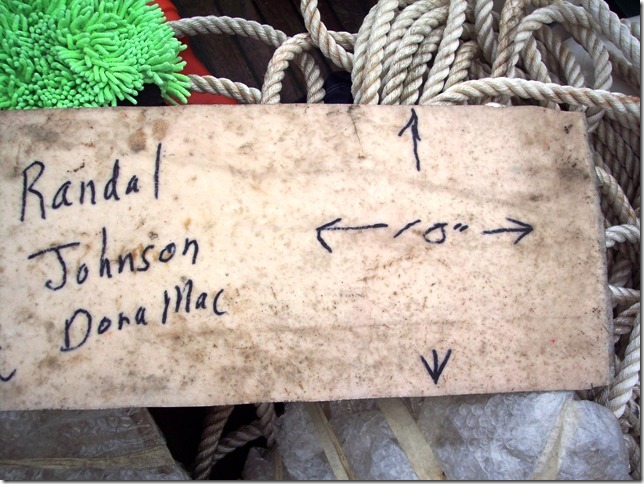 Randal
Johnson
Dona Mac
← 10" →